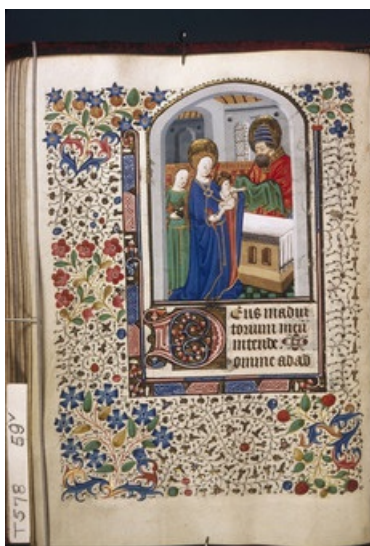 Deus in adiu
torium meū
intende D
omine ad ad
T 578 59v